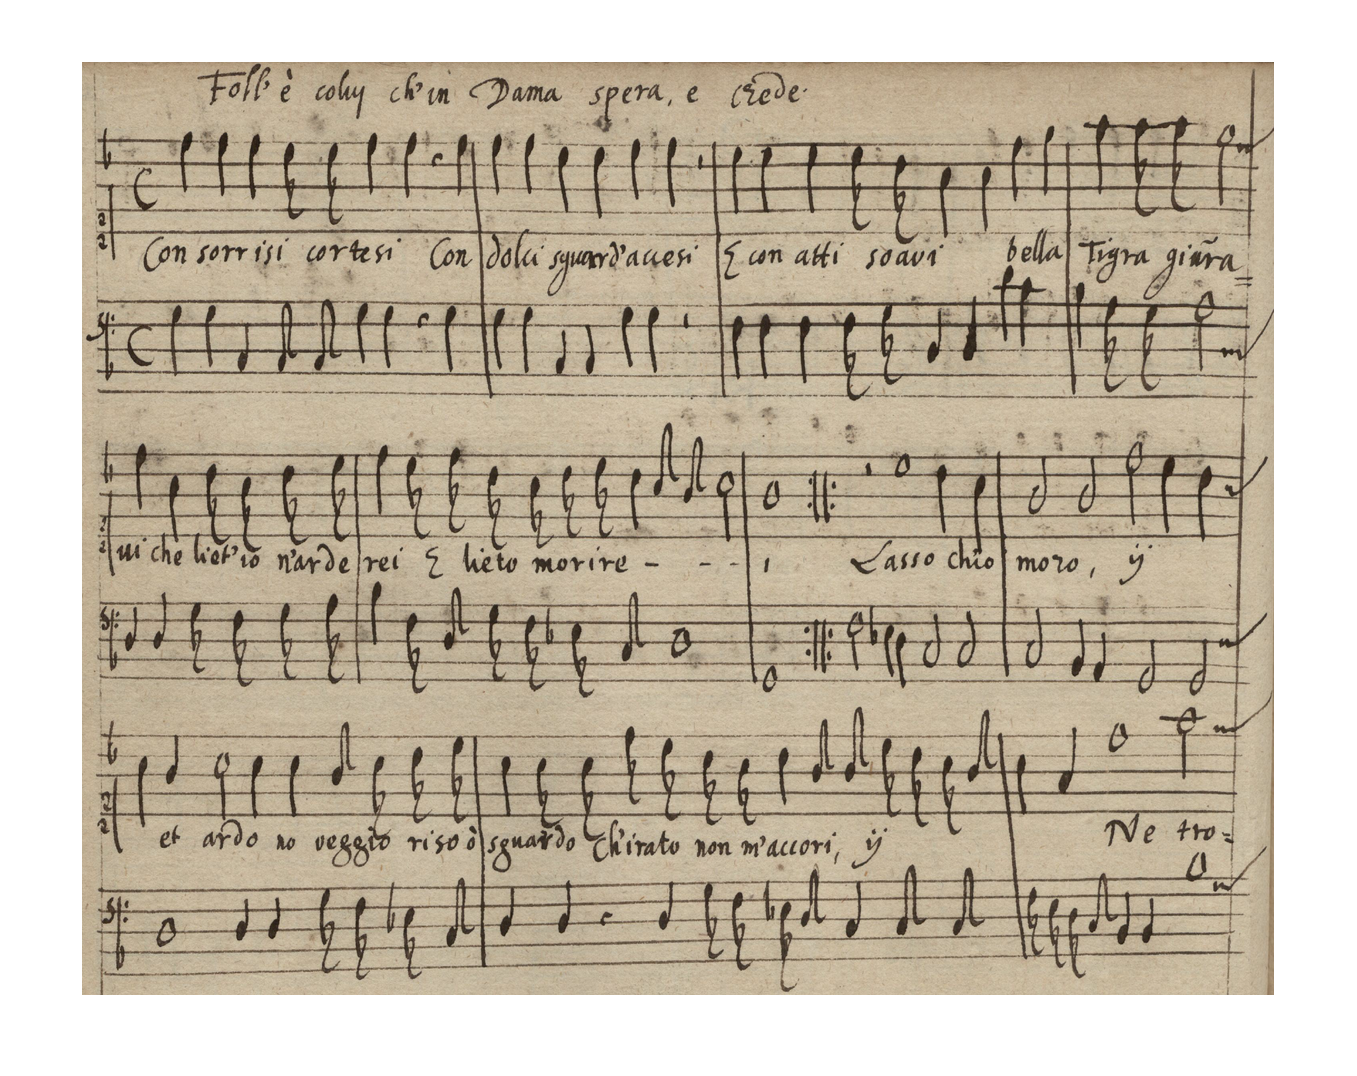 Foll' è coluy ch'in Dama spera, e crede.
Con sorrisi cortesi Con dolci sguard'accesi E con atti soavi bella Tigra giura=
vi che liet'io n'arderei E lieto morire - - - i Lasso ch'io moro, ij
et ardo no veggio riso ò sguardo Ch'irato non m'accori, ij Ne tro=